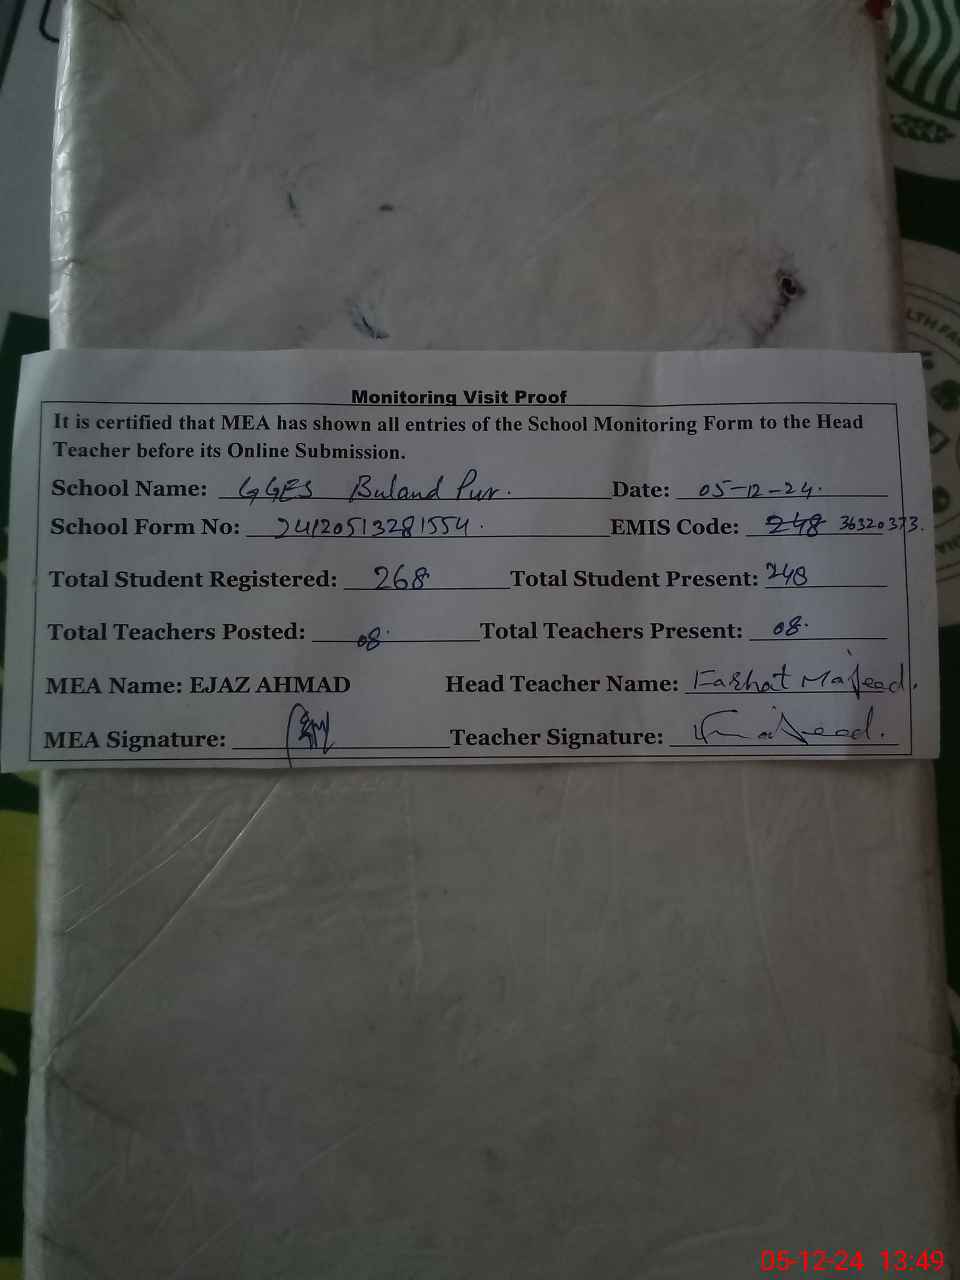 Monitoring Visit Proof
It is certified that MEA has shown all entries of the School Monitoring Form to the Head
Teacher before its Online Submission.
School Name: GGES Buland Pur. Date: 05-12-24.
School Form No: 24120513281554. EMIS Code: 248 36320373.
Total Student Registered: 268 Total Student Present: 248
Total Teachers Posted: 08. Total Teachers Present: 08.
MEA Name: EJAZ AHMAD Head Teacher Name: Farhat Majeed.
MEA Signature: Teacher Signature:
LTH FAC
05-12-24 13:49